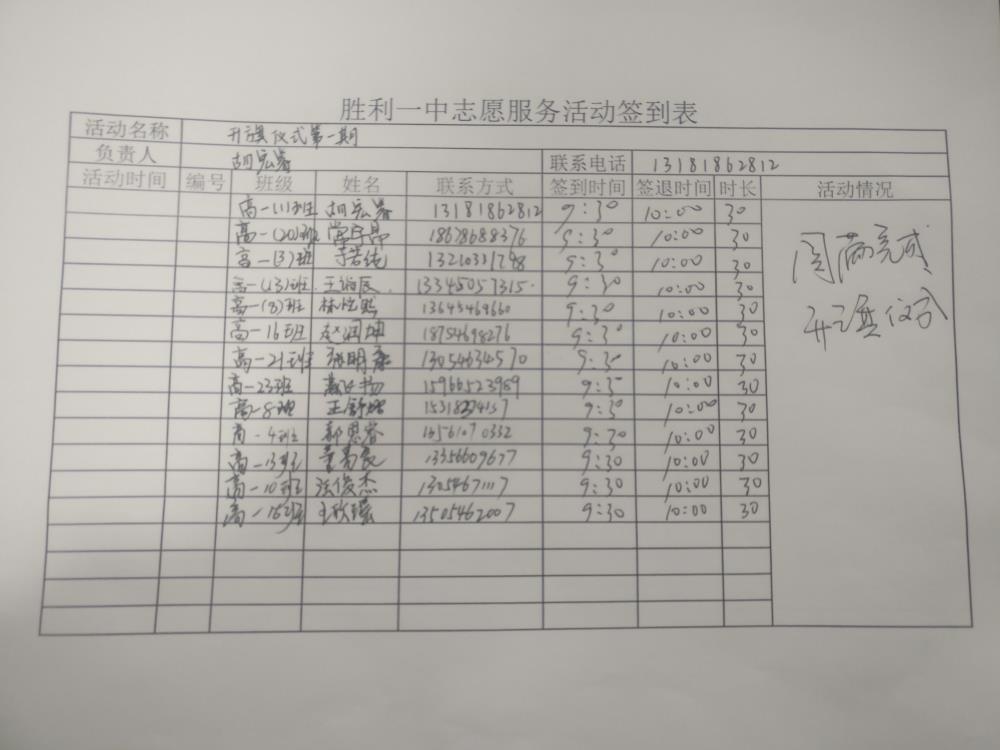 胜利一中志愿服务活动签到表
活动名称 升旗仪式第一期
负责人 胡宏 联系电话 13181862812
活动时间 编号 班级 姓名 联系方式 签到时间 签退时间 时长 活动情况
高一(1)班 胡宏 13181862812 9:30 10:00 30
高一(20)班 18678688376 9:30 10:00 30
高一(3)班 9:30 10:00 30
高一(13)班 王 13345057315 9:30 10:00 30
高一(8)班 林 13645469660 9:30 10:00 30
高一16班 赵润坤 18754698276 9:30 10:00 30
高一21班 张明 13054634570 9:30 10:00 30
高一23班 15966523989 9:30 10:00 30
高一8班 王舒 9:30 10:00 30
高一4班 郭恩睿 13561070332 9:30 10:00 30
高一13班 董 13356609677 9:30 10:00 30
高一10班 俊杰 13054671117 9:30 10:00 30
高一16班 王欣 13505462007 9:30 10:00 30
圆满完成
升旗仪式